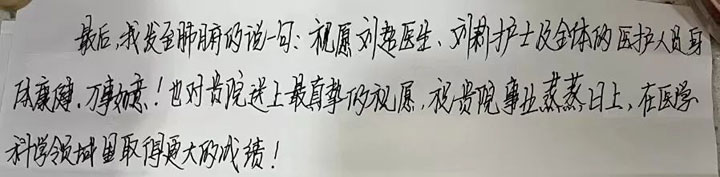 最后,我发至肺腑的说一句:祝愿刘超医生、刘莉护士及全体的医护人员身
体康健,万事如意!也对贵院送上最真挚的祝愿,祝贵院事业蒸蒸日上,在医学
科学领域里取得更大的成绩!